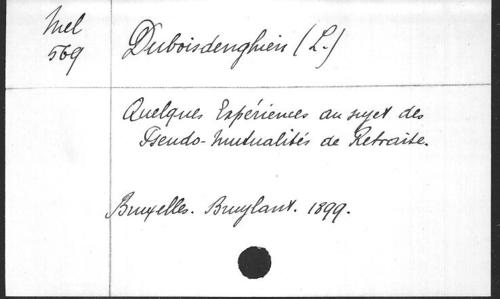 Mel
569
Duboisdenghien (L.)
Quelques Expériences au sujet des
Pseudo-Mutualités de Retraite.
Bruxelles. Bruylant. 1899.